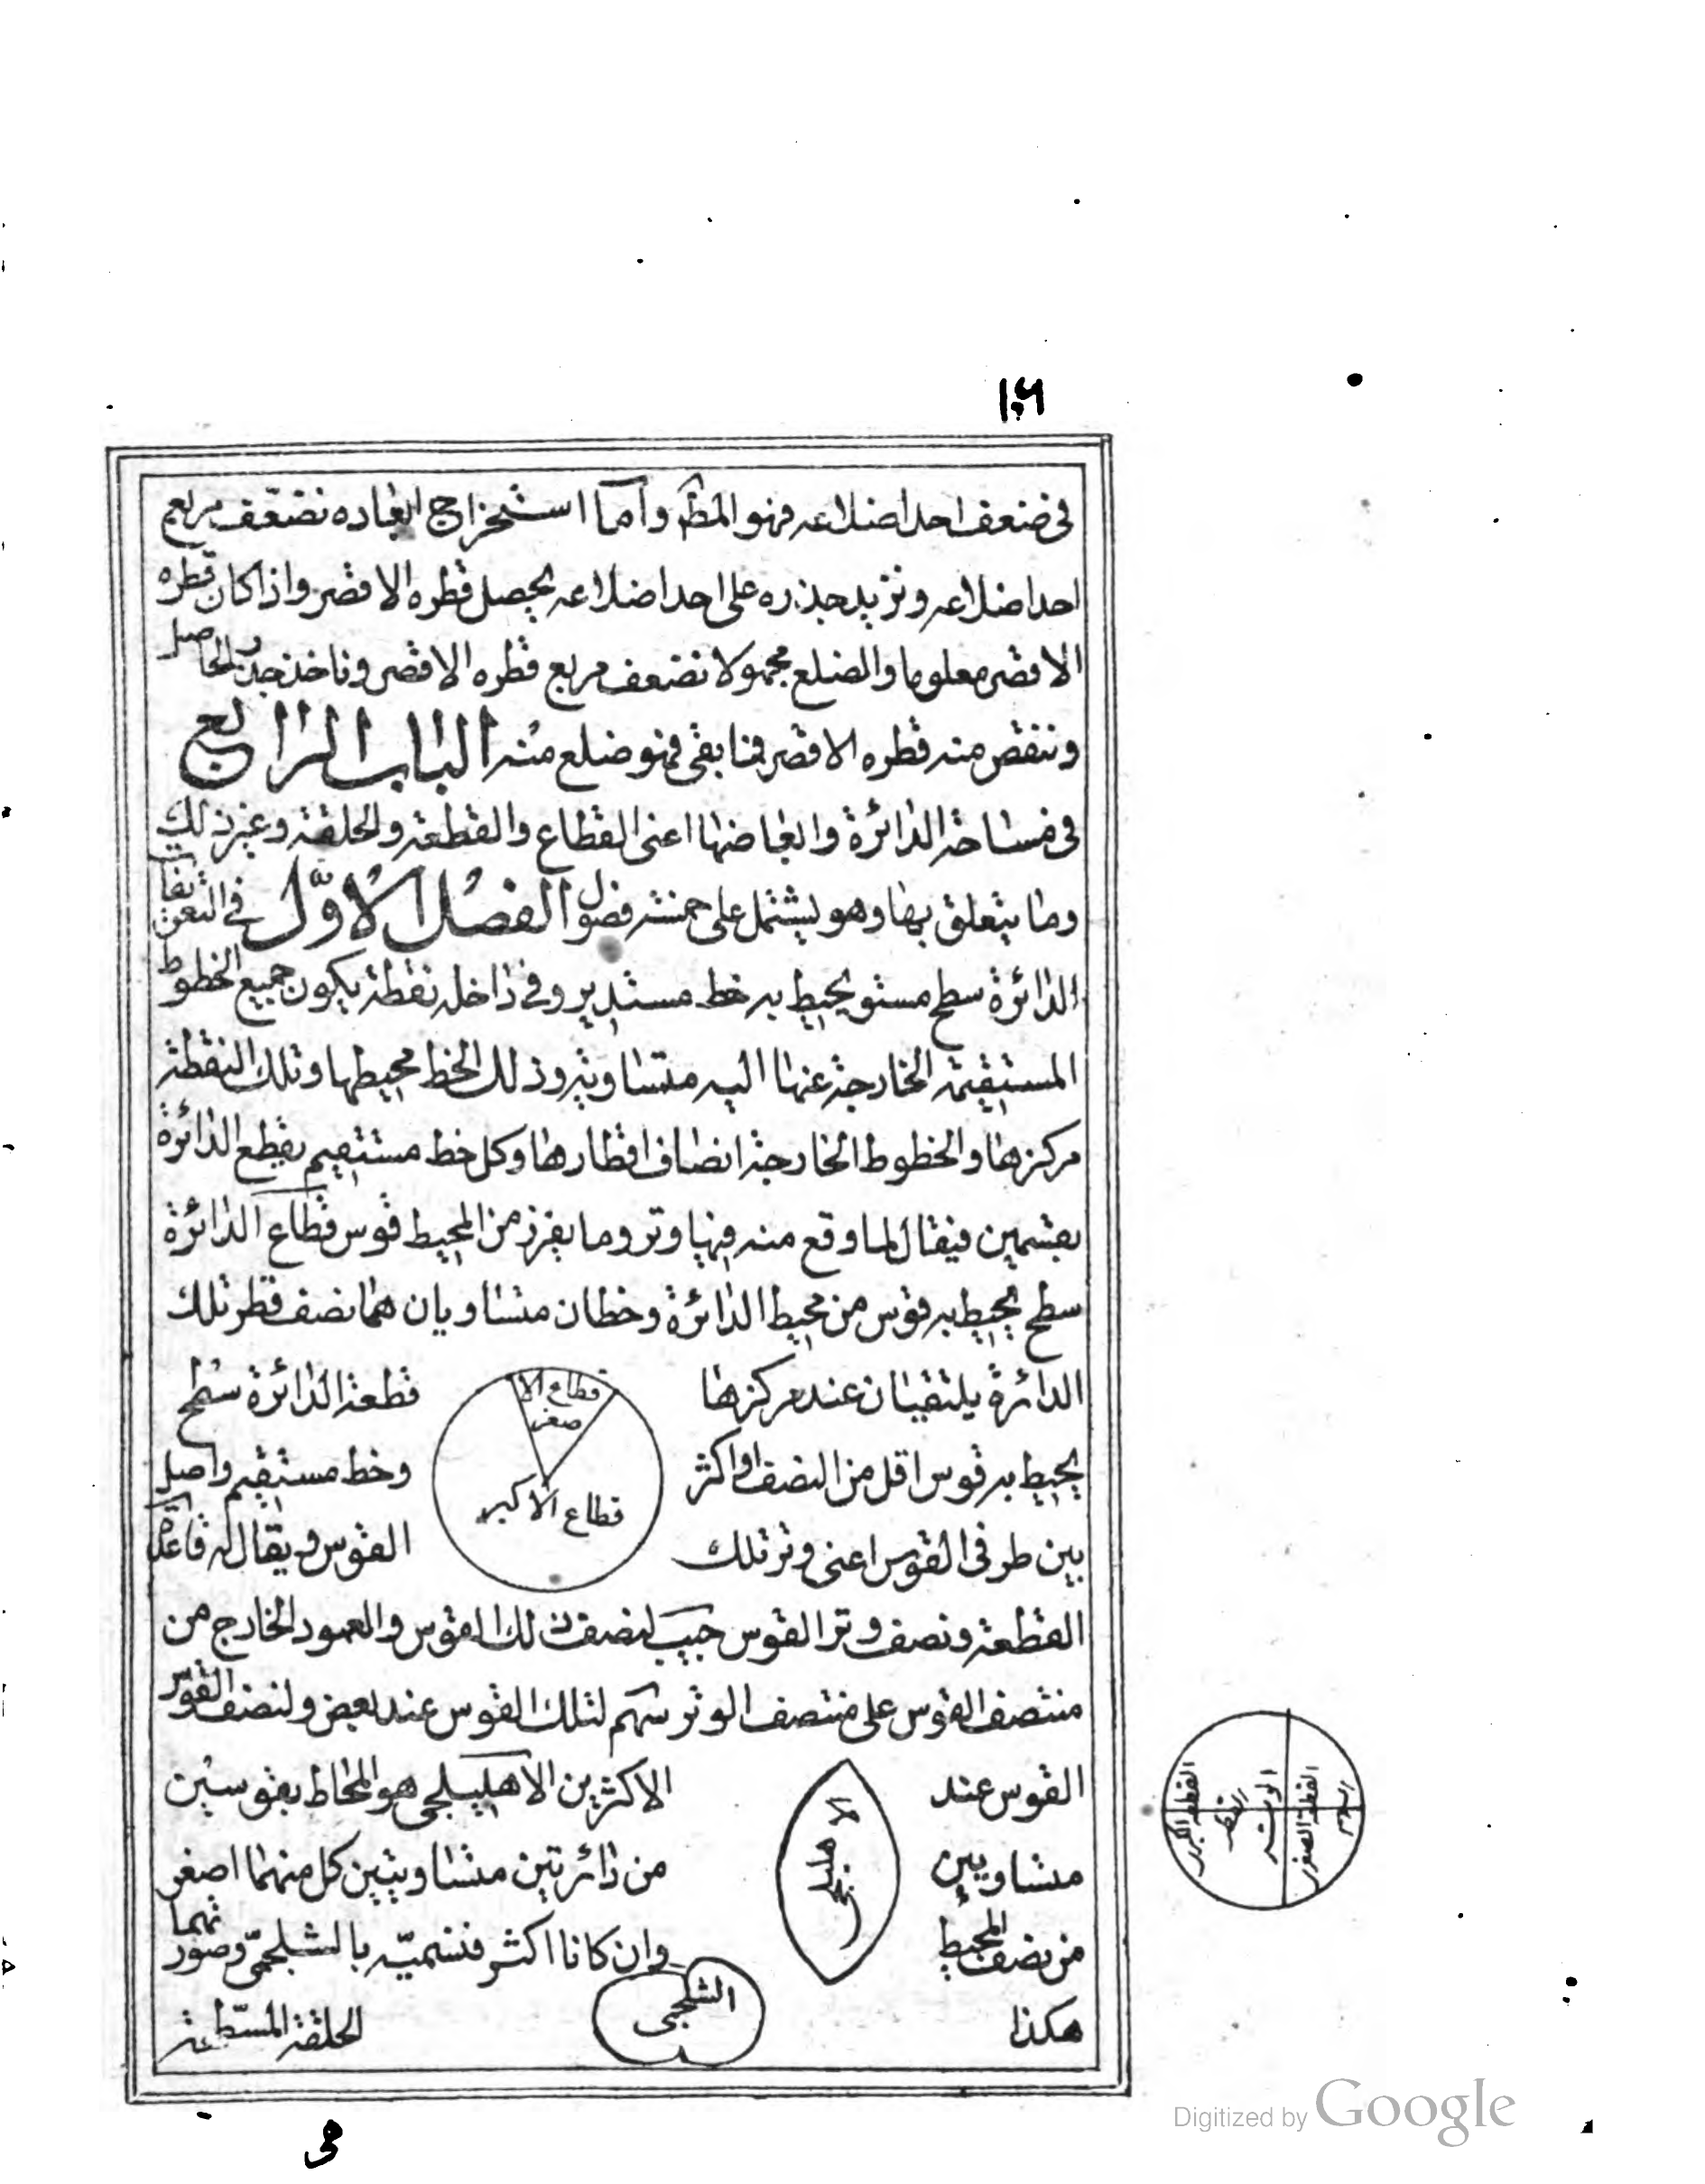 ١٠٦
فى ضعف احد اضلاعه فهو المط واما استخراج ابعاده نضعف مربع
احد اضلاعه ونزيد جذره على احد اضلاعه يحصل قطره الاقصر واذا كان قطره
الاقصر معلوما والضلع مجهولا نضعف مربع قطره الاقصر وناخذ جذر الحاصل
وننقص منه قطره الاقصر فما بقى فهو ضلع منه الباب الرابع
فى مساحة الدائرة وابعاضها اعنى القطاع والقطعة والحلقة وغير ذلك
وما يتعلق بها وهو يشتمل على خمسة فصول الفصل الاول فى التعريفات
الدائرة سطح مستو يحيط به خط مستدير وفى داخله نقطة يكون جميع الخطوط
المستقيمة الخارجة عنها اليه متساوية وذلك الخط محيطها وتلك النقطة
مركزها والخطوط الخارجة انصاف اقطارها وكل خط مستقيم يقطع الدائرة
بقسمين فيقال لما وقع منه فيها وتر وما يفرز من المحيط قوس قطاع الدائرة
سطح يحيط به قوس من محيط الدائرة وخطان متساويان هما نصف قطر تلك
الدائرة يلتقيان عند مركزها قطعة الدائرة سطح
يحيط به قوس اقل من النصف او اكثر وخط مستقيم واصل
بين طرفى القوس اعنى وتر تلك القوس ويقال له قاعدة
قطاع الا
صغر
قطاع الاكبر
القطعة ونصف وتر القوس جيب لنصف ذلك القوس والعمود الخارج من
منتصف القوس على منتصف الوتر سهم لتلك القوس عند بعض ولنصف القوس
القوس عند الاكثرين الاهليلجى هو المحاط بقوسين
متساويين من دائرتين متساويتين كل منهما اصغر
من نصف المحيط وان كانا اكثر فنسميه بالشلجمى وصورتهما
هكذا الحلقة المسطحة
الاهليلجى
الشلجمى
القطعة الكبرى
الوتر
القطعة الصغرى
هى
Digitized by Google